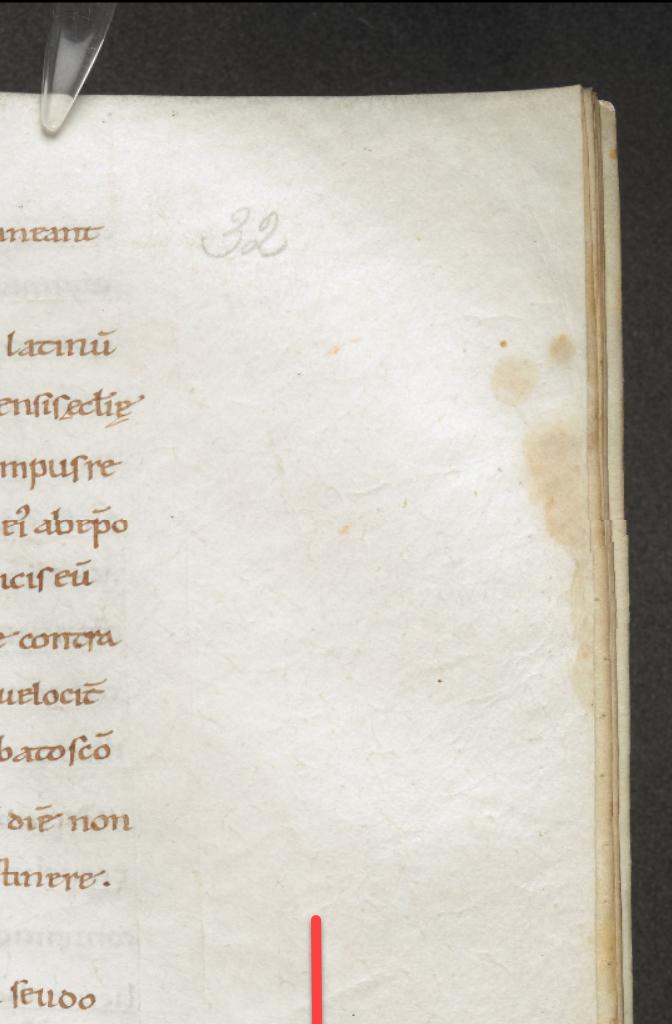 neant
32
latinū
ensisęcclię
mpusre
eı̓ abep̄o
icis eū
contra
uelocit̄
batoscō
diē non
tinere.
seudo